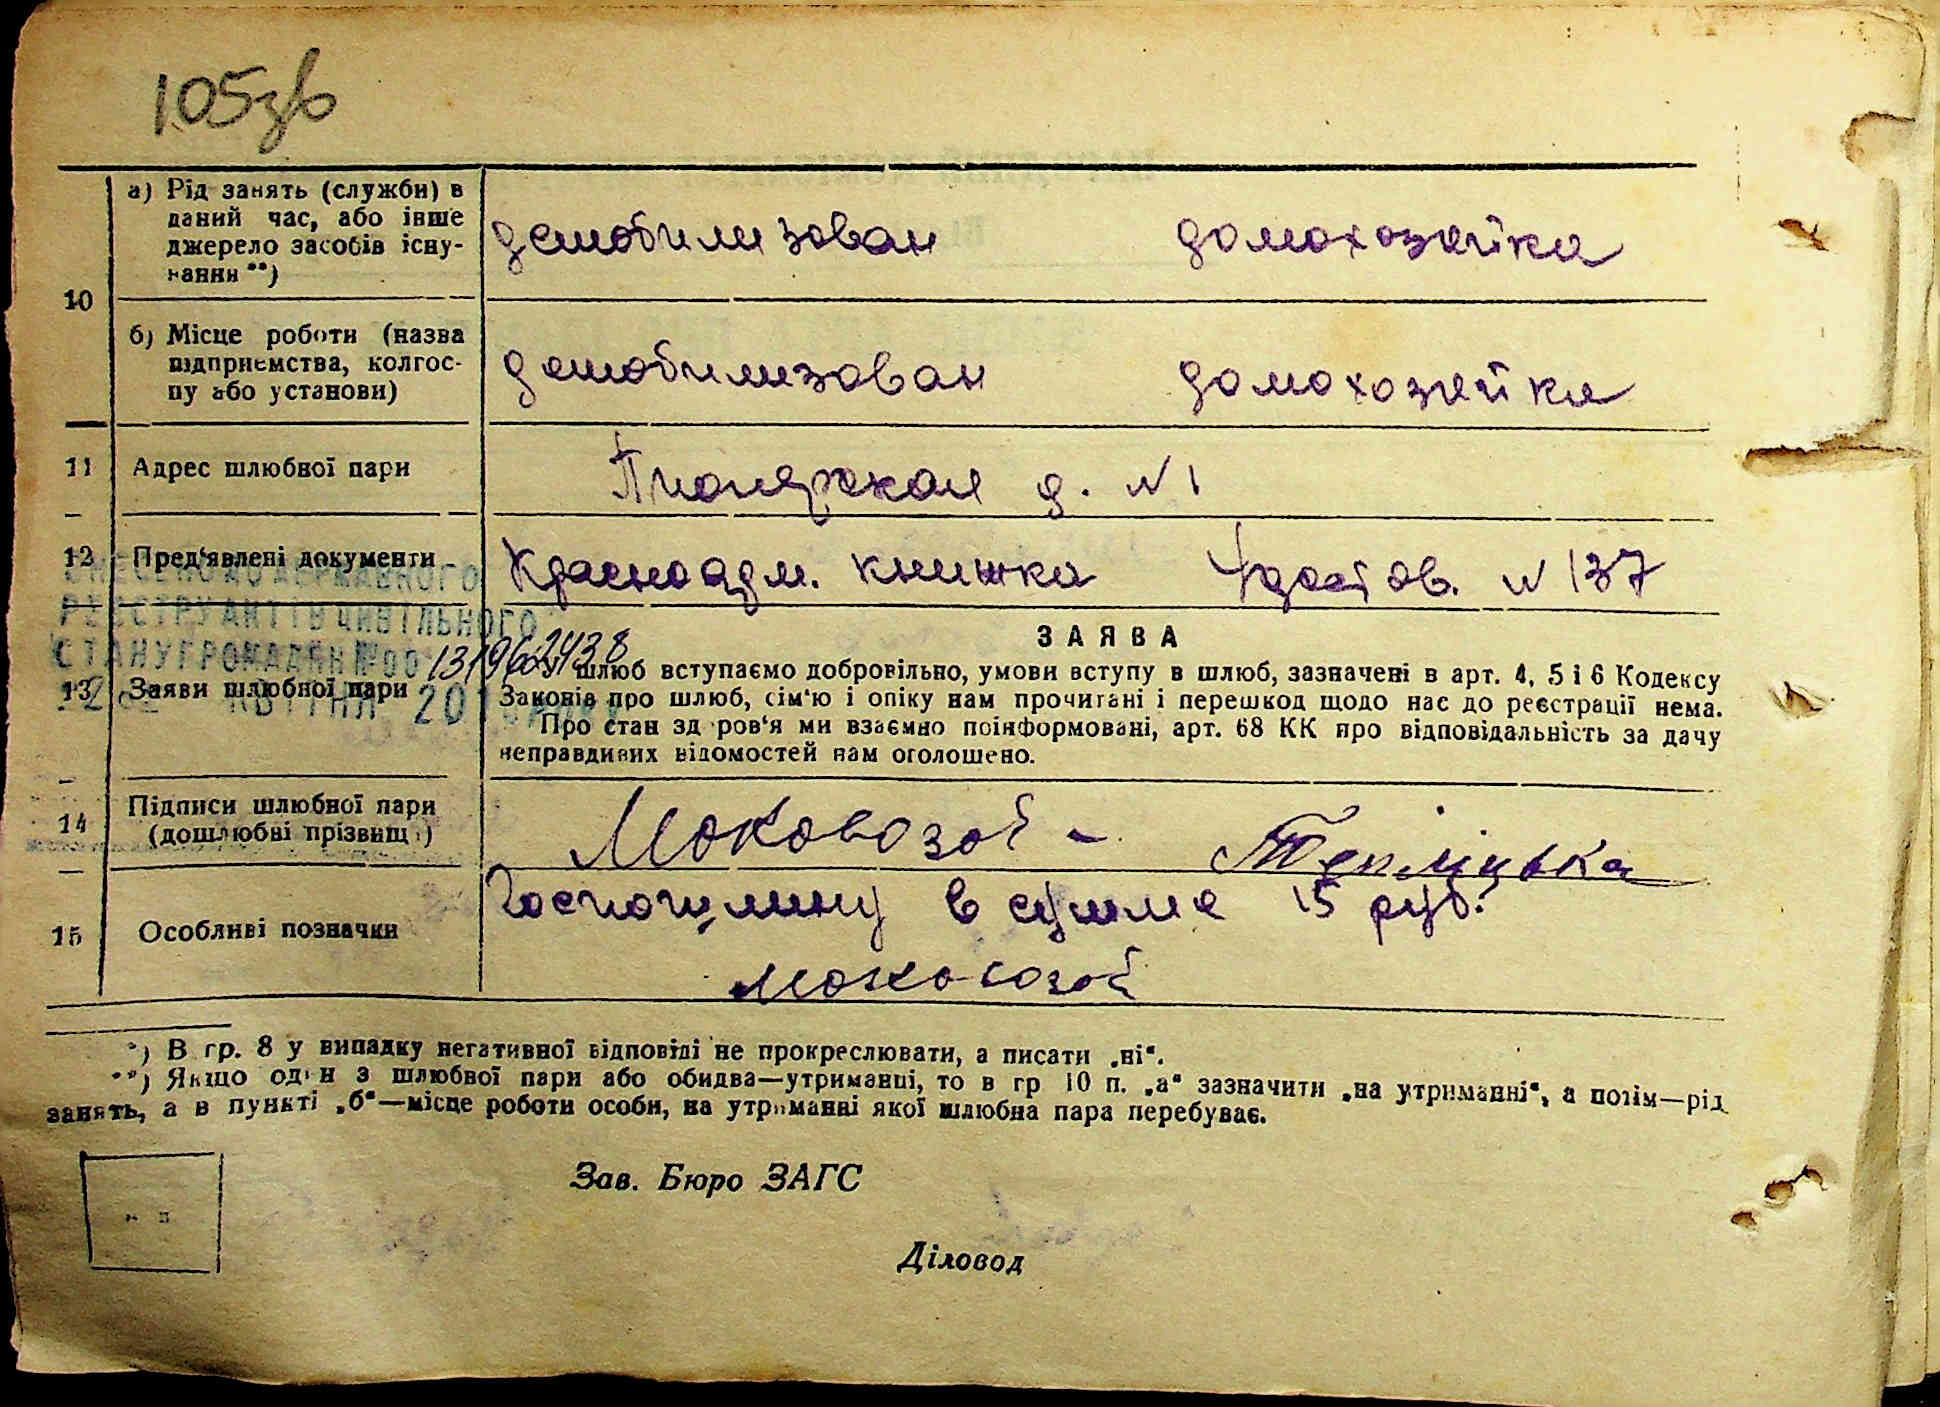 105зв
10
а) Рід занять (служби) в
даний час, або інше
джерело засобів існу-
вання **)
демобилизован домохозяйка
б) Місце роботи (назва
підприємства, колгос-
пу або установи)
демобилизован домохозяйка
11 Адрес шлюбної пари
Пионерская д. №1
12 Пред'явлені документи
Красноарм. книжка Удостов. №137
ДЕРЖАВНОГО
РЕЄСТРУ АКТІВ ЦИВІЛЬНОГО
СТАНУ ГРОМАДЯН №00
КВІТНЯ
13 Заяви шлюбної пари
ЗАЯВА
шлюб вступаємо добровільно, умови вступу в шлюб, зазначені в арт. 4, 5 і 6 Кодексу
Законів про шлюб, сім'ю і опіку нам прочитані і перешкод щодо нас до реєстрації нема.
Про стан здоров'я ми взаємно поінформовані, арт. 68 КК про відповідальність за дачу
неправдивих відомостей нам оголошено.
14 Підписи шлюбної пари
(дошлюбні прізвищ )
Моковозой - Тепліцька
15 Особливі позначки
Госпошлину в сумме 15 руб.
Моковозой
*) В гр. 8 у випадку негативної відповіді не прокреслювати, а писати „ні“.
**) Якщо один з шлюбної пари або обидва—утриманці, то в гр 10 п. „а“ зазначити „на утриманні“, а потім—рід
занять, а в пункті „б“—місце роботи особи, на утриманні якої шлюбна пара перебуває.
Зав. Бюро ЗАГС
Діловод